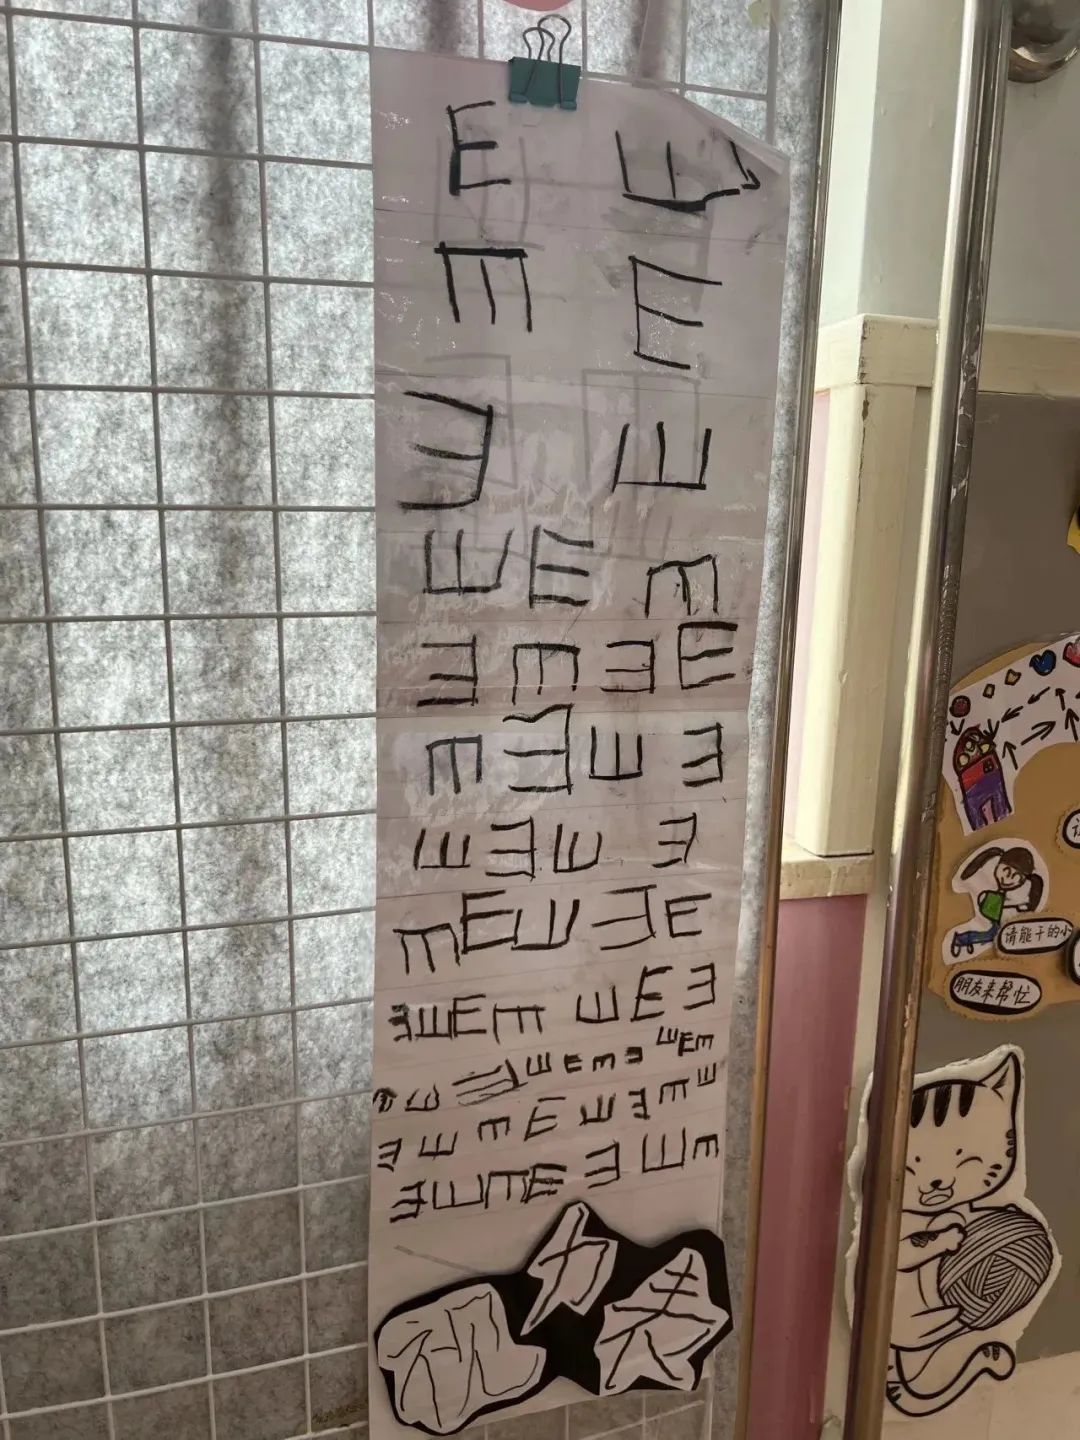 E E
E E
E E
E E E
E E E E
E E E E
E E E E
E E E E E
E E E E E E E
E E E E E E E
E E E E E E E E
E E E E E E E
视力表
请能干的小
朋友来帮忙